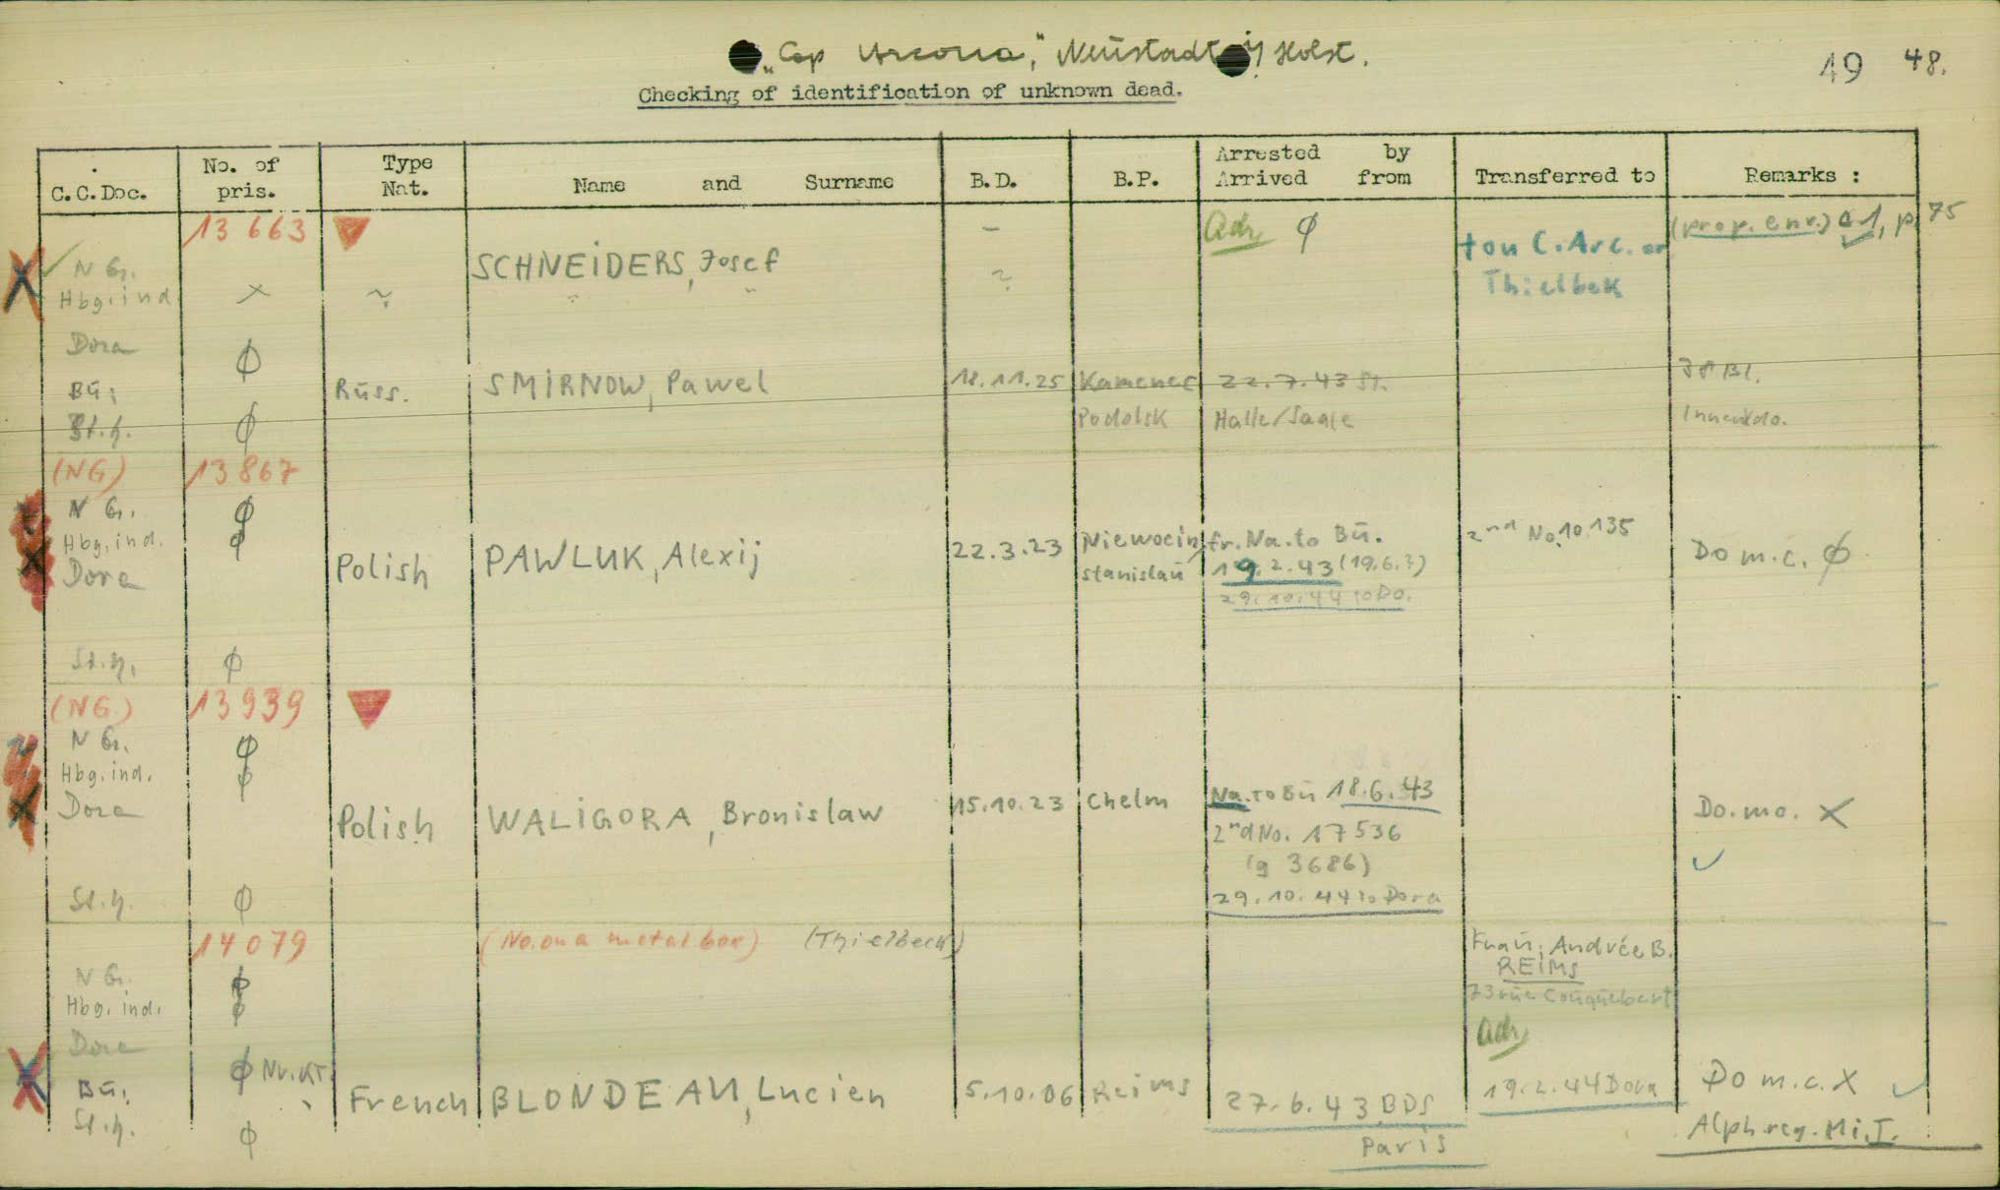 „Cap Arcona", Neustadt i/ Holst.
49 48.
Checking of identification of unknown dead.
C.C.Doc. No. of pris. Type Nat. Name and Surname B.D. B.P. Arrested by Arrived from Transferred to Remarks :
13 663 – Adr. φ (prop. env.) 1, p. 75
N G.
SCHNEIDERS, Josef ? + on C. Arc. or
Hbg. ind. x ? Thielbek
Dora φ
Bü. Russ. SMIRNOW, Pawel 18.11.25 Kamenec 22.7.43 St. Bl.
St. h. φ Podolsk Halle/Saale Innenkdo.
(NG) 13 867
N G. φ
Hbg. ind. φ Niewocin fr. Na. to Bü. 2nd No. 10 135
Dora Polish PAWLUK, Alexij 22.3.23 Stanislau 19.2.43 (19.6.?) Do m.c. φ
29.10.44 to Do.
St. h. φ
(NG) 13 939
N G. φ
Hbg. ind. φ
Dora Polish WALIGORA, Bronislaw 15.10.23 Chelm Na. to Bü 18.6.43 Do. mo. X
2nd No. 17536
(g 3686)
St. h. φ 29.10.44 to Dora
14 079 (No. on a metal box) (Thielbeck) Frau; Andrée B.
N G. φ REIMS
Hbg. ind. φ 73 rue
Dora Adr.
φ Nr. KT.
Bü. French BLONDEAU, Lucien 5.10.06 Reims 27.6.43 BDS 19.2.44 Dora Do m.c. X
St. h. φ Paris Alph. reg. Mi. I.